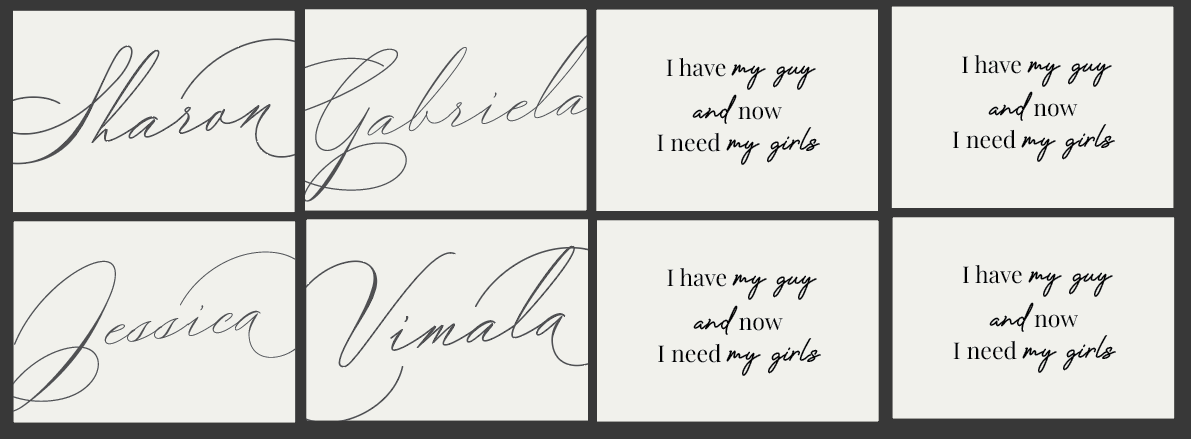 Sharon
Gabriela
I have my guy
and now
I need my girls
I have my guy
and now
I need my girls
Jessica
Vimala
I have my guy
and now
I need my girls
I have my guy
and now
I need my girls